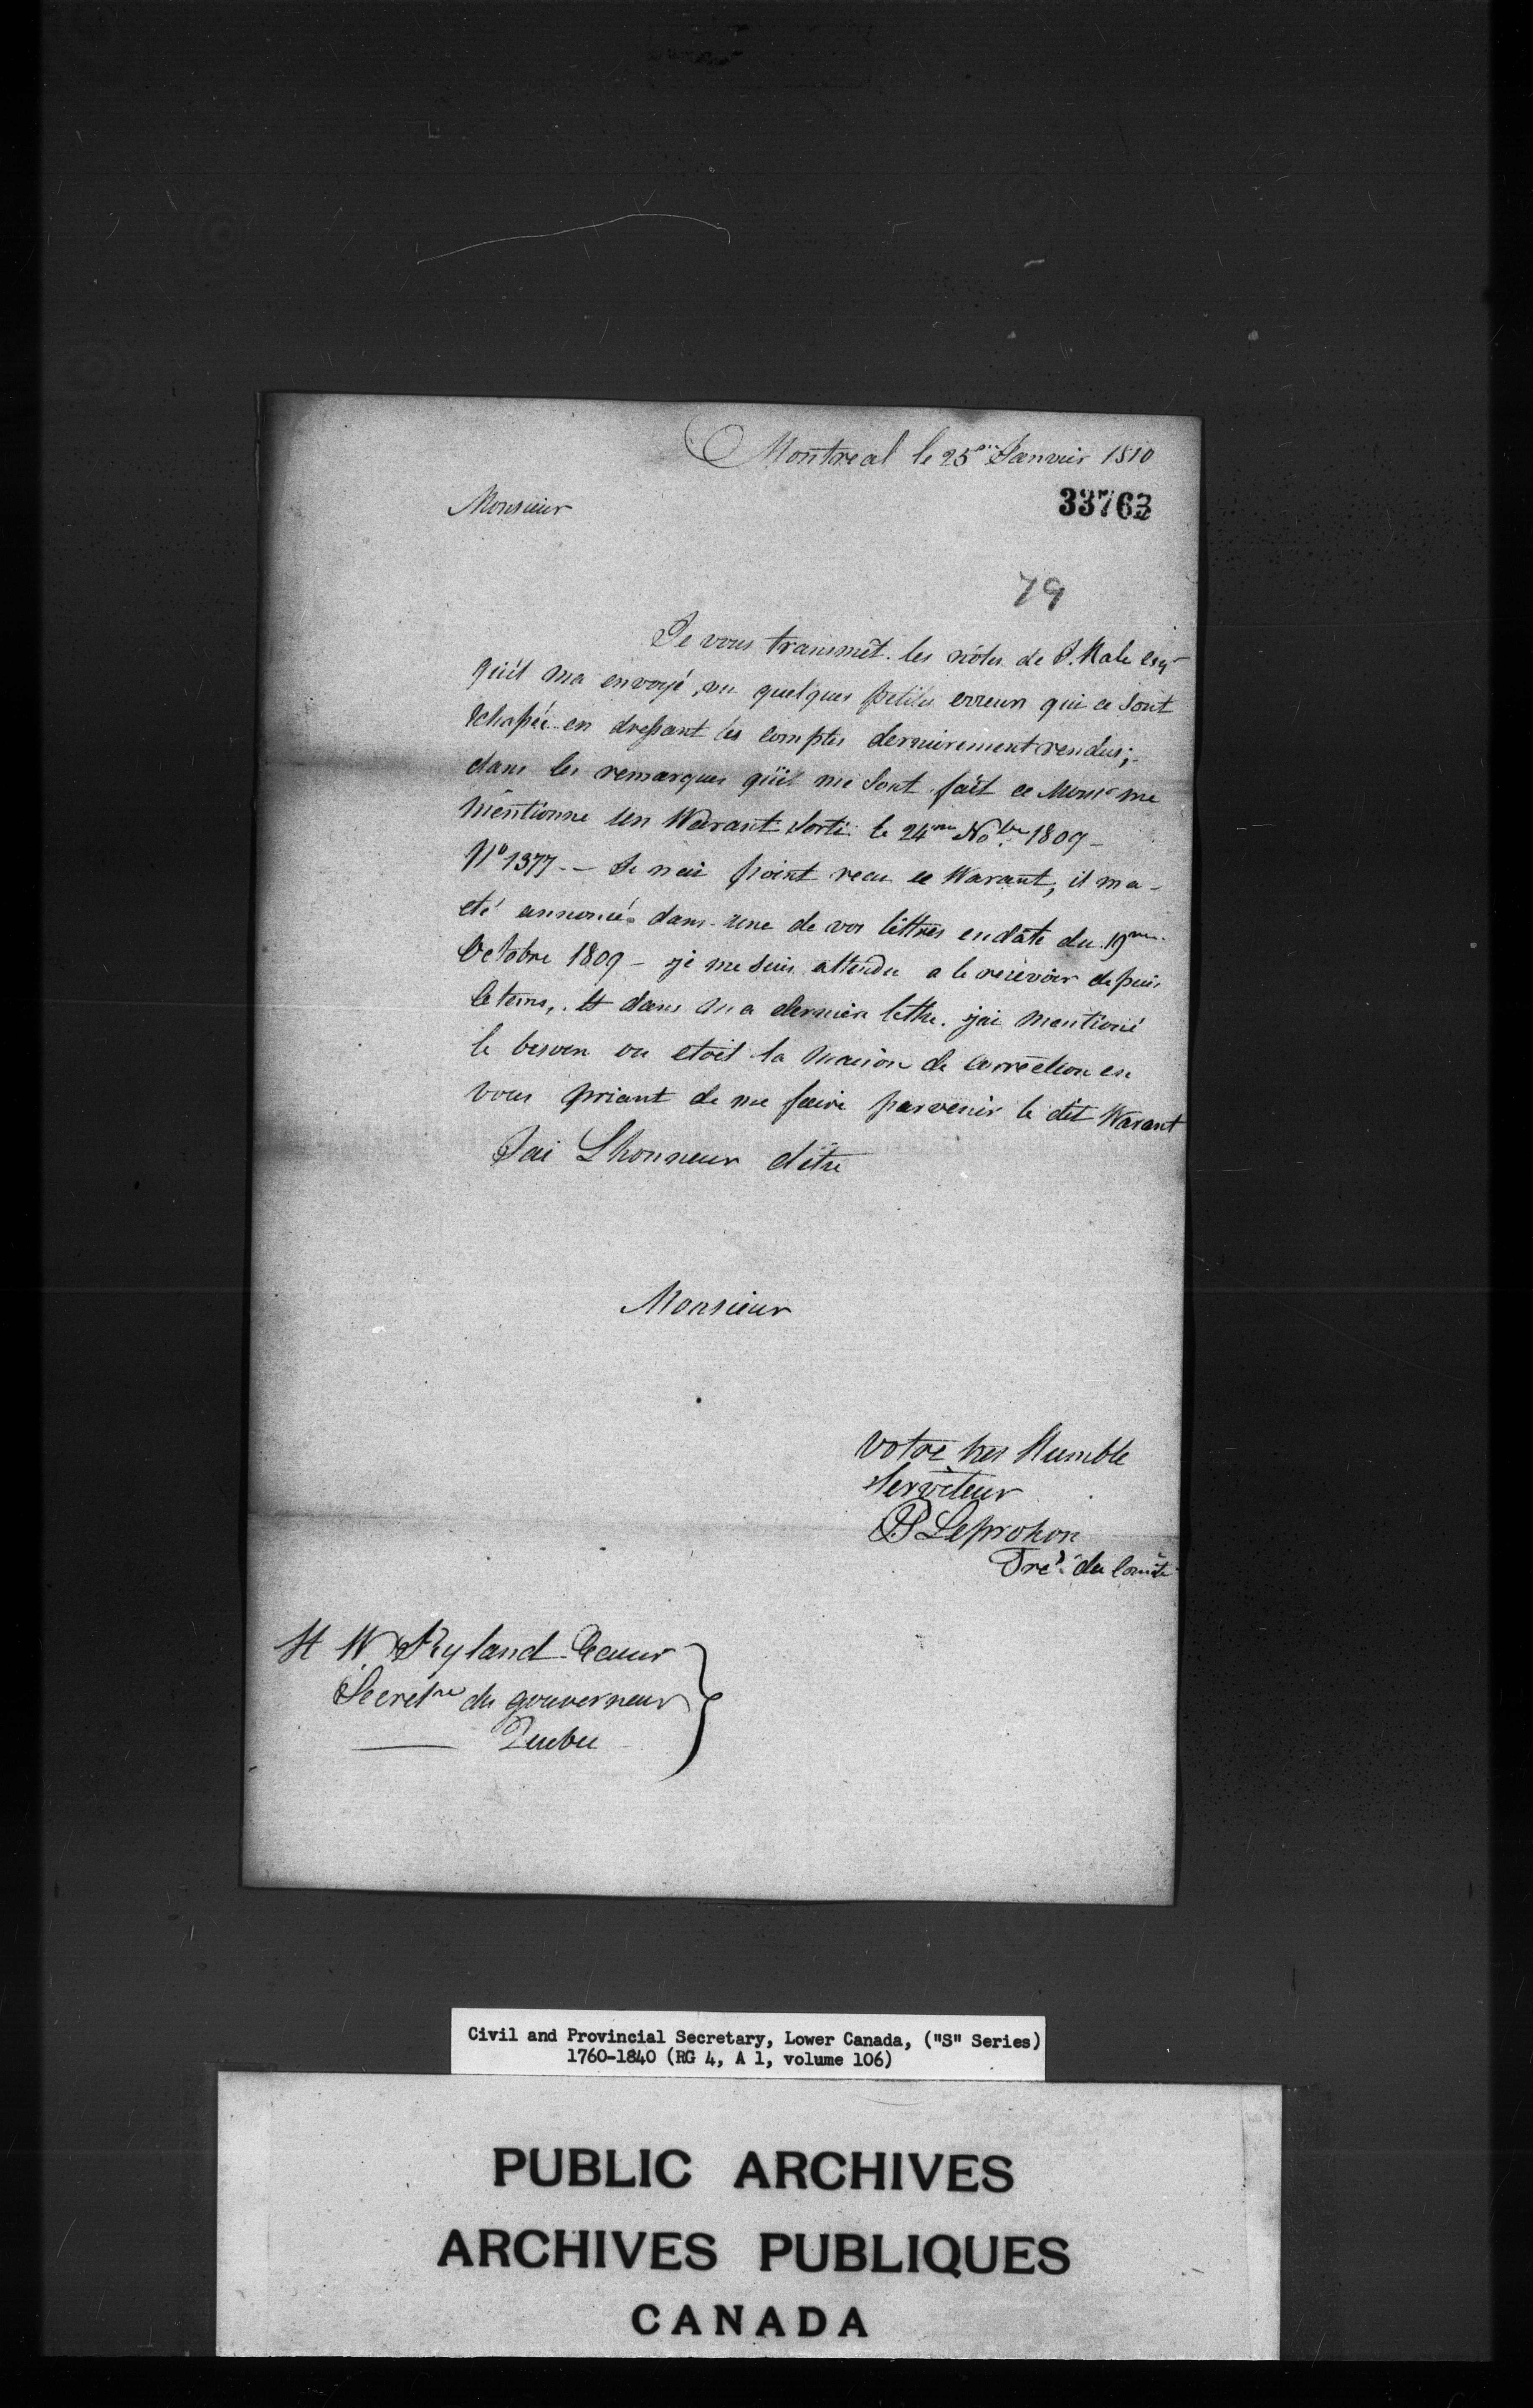 Montreal le 25me Janvier 1810
33763
Monsieur
79
Je vous transmêt les nótes de J. Hale Esqr
qu'il ma envoyé, vu quelques petites erreurs qui ce sont
echapée en dressant les comptes dernierement rendus;
dans les remarques qu'il me sont fait ce Monsr me
mentionne un Warant sorti le 24me Nobre 1809 -
No 1377 - Je nai point recu ce Warant, il ma
eté annoncé dans une de vos lettres en date du 19me
Octobre 1809 - je me suis attendu a le recevoir depuis
ce tems, et dans ma derniere lettre jai mentioné
le besoin ou etoit la maison de correction en
vous priant de me faire parvenir le dit Warant
Jai Lhonneur d'etre
Monsieur
votre tres Humble
Serviteur
JP Leprohon
Tre. du Comité
H W Ryland Ecuier
Secretre du gouverneur
Quebec
Civil and Provincial Secretary, Lower Canada, ("S" Series)
1760-1840 (RG 4, A 1, volume 106)
PUBLIC ARCHIVES
ARCHIVES PUBLIQUES
CANADA